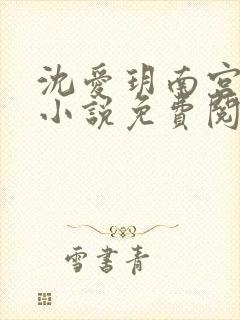 沈爱玥南宫
小说免费阅
雪书青